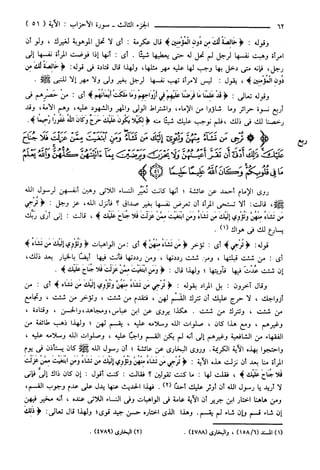 ٦٢ الجزء الثالث ـ سورة الأحزاب: الآية (٥١)
وقوله: ﴿خالصة لك من دون المؤمنين﴾ قال عكرمة: أي لا تحل الموهوبة لغيرك، ولو أن
امرأة وهبت نفسها لرجل لم تحل له حتى يعطيها شيئاً. أي: أنها إذا فوضت المرأة نفسها إلى
رجل، فإنه متى دخل بها وجب لها عليه مهر مثلها، ولهذا قال قتادة في قوله: ﴿خالصة لك من
دون المؤمنين﴾، يقول: ليس لامرأة تهب نفسها لرجل بغير ولي ولا مهر إلا للنبي ﷺ.
وقوله تعالى: ﴿قد علمنا ما فرضنا عليهم في أزواجهم وما ملكت أيمانهم﴾ أي: من حصرهم في
أربع نسوة حرائر وما شاؤوا من الإماء، واشتراط الولي والمهر والشهود عليه، وهم الأمة، وقد
رخصنا لك في ذلك، فلم نوجب عليك شيئاً منه ﴿لكيلا يكون عليك حرج وكان الله غفوراً رحيماً﴾.
﴿ترجي من تشاء منهن وتؤوي إليك من تشاء ومن ابتغيت ممن عزلت فلا جناح
عليك ذلك أدنى أن تقر أعينهن ولا يحزن ويرضين بما آتيتهن كلهن والله يعلم
ما في قلوبكم وكان الله عليماً حليماً ٥١﴾
ربع
روى الإمام أحمد عن عائشة: أنها كانت تُعيّر النساء اللاتي وهبن أنفسهن لرسول الله
ﷺ، قالت: ألا تستحي المرأة أن تعرض نفسها بغير صداق؟ فأنزل الله، عز وجل: ﴿ترجي
من تشاء منهن وتؤوي إليك من تشاء ومن ابتغيت ممن عزلت فلا جناح عليك﴾، قالت: إني أرى ربك
يسارع لك في هواك (١).
قوله: ﴿ترجي﴾ أي: تؤخر ﴿من تشاء منهن﴾ أي: من الواهبات ﴿وتؤوي إليك من تشاء﴾
أي: من شئت قبلتها، ومن شئت رددتها، ومن رددتها فأنت فيها أيضاً بالخيار بعد ذلك،
إن شئت عدت فيها فآويتها؛ ولهذا قال: ﴿ومن ابتغيت ممن عزلت فلا جناح عليك﴾.
وقال آخرون: بل المراد بقوله: ﴿ترجي من تشاء منهن وتؤوي إليك من تشاء﴾ أي: من
أزواجك، لا حرج عليك أن تترك القسم لهن، فتقدم من شئت، وتؤخر من شئت، وتجامع
من شئت، وتترك من شئت. هكذا يروى عن ابن عباس، ومجاهد، والحسن، وقتادة،
وغيرهم، ومع هذا كان، صلوات الله وسلامه عليه، يقسم لهن؛ ولهذا ذهب طائفة من
الفقهاء من الشافعية وغيرهم إلى أنه لم يكن القسم واجباً عليه، صلوات الله وسلامه عليه،
واحتجوا بهذه الآية الكريمة. وروى البخاري عن عائشة؛ أن رسول الله ﷺ كان يستأذن في يوم
المرأة منا بعد أن نزلت هذه الآية: ﴿ترجي من تشاء منهن وتؤوي إليك من تشاء ومن ابتغيت ممن عزلت
فلا جناح عليك﴾، فقلت لها: ما كنت تقولين؟ فقالت: كنت أقول: إن كان ذاك إليَّ فإني
لا أريد يا رسول الله أن أوثر عليك أحداً (٢). فهذا الحديث عنها يدل على عدم وجوب القسم،
ومن هاهنا اختار ابن جرير أن الآية عامة في الواهبات وفي النساء اللاتي عنده، أنه مخير فيهن
إن شاء قسم وإن شاء لم يقسم. وهذا الذي اختاره حسن جيد قوي؛ ولهذا قال تعالى: ﴿ذلك
(١) المسند (١٥٨/٦)، والبخاري (٤٧٨٨). (٢) البخاري (٤٧٨٩).